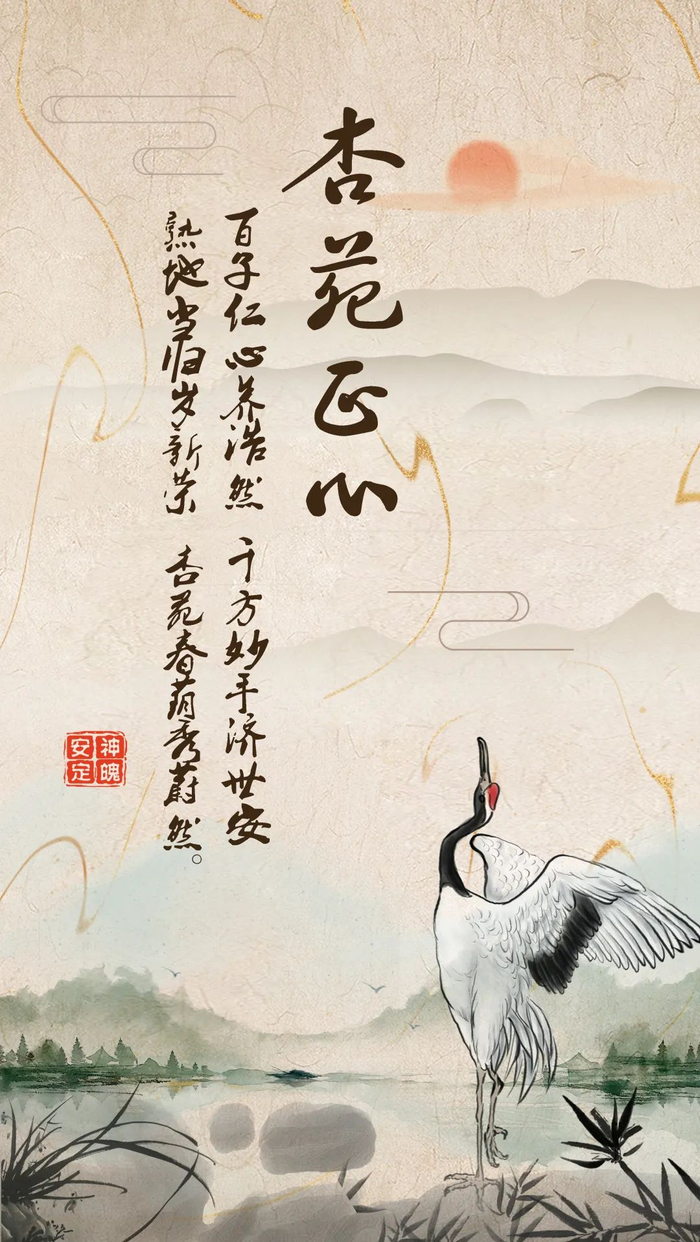 杏苑正心
百子仁心养浩然 千方妙手济世安
熟地当归岁新荣 杏苑春萌秀蔚然。
神魄安定